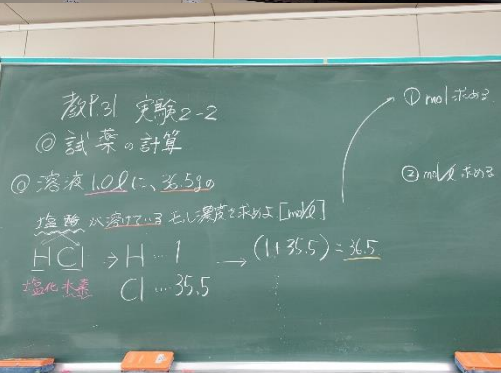 教P.31 実験2-2
◎試薬の計算
◎溶液1.0ℓに、36.5gの
塩酸が溶けている モル濃度を求めよ [mol/ℓ]
HCl → H … 1 → (1+35.5) = 36.5
塩化水素 Cl … 35.5
① mol 求める
② mol/ℓ 求める